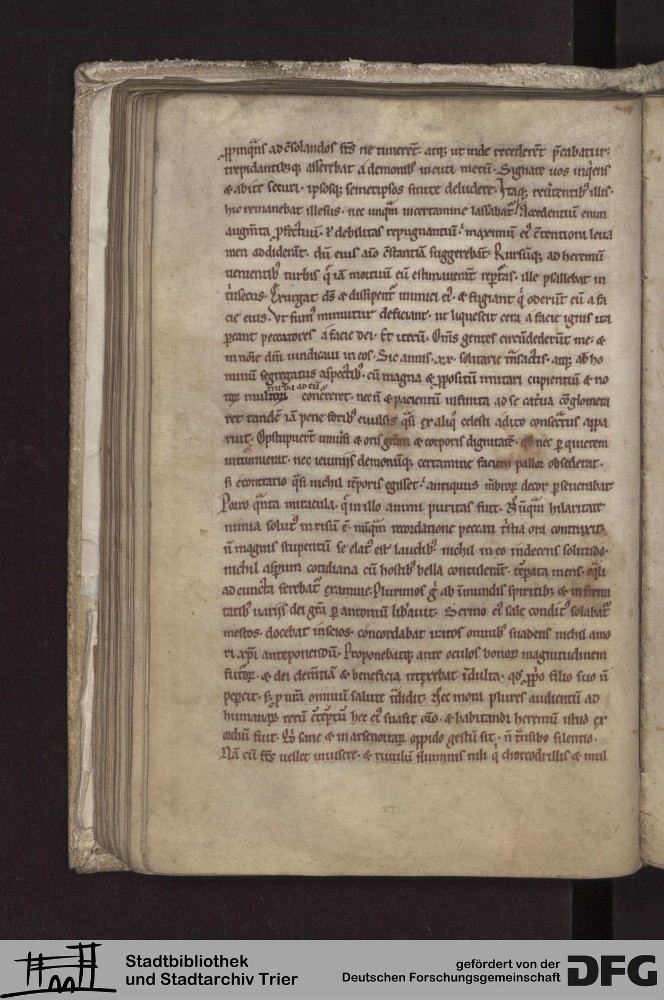 ꝓpinq̃ns ad ꝯsolandos fr̃s ne timerent· atq; ut inde recederent p̃cabatur:
trepidantibꝰq; asserebat a demonibꝰ incuti metũ· Signate uos inq̇ens
& abite securi· ipsosq; semetipsos sinite deludere· Itaq; reuertentibꝰ illis·
hic remanebat illesus· nec unq̃m in certamine lassabat᷑· Accedentiũ enim
augm̃ta ꝓfectuũ· & debilitas repugnantiũ· maximũ eiꝰ ꝯtentioni leua
men addiderãt· dũ eius aĩo ꝯstantiã suggerebãt· Rursũq; ad heremũ
uenientibꝰ turbis q̃ iã mortuũ eũ estimauerãt reꝑtꝰ· ille psallebat in
t̃nsecus· Exurgat ds̃ & dissipent᷑ inimici eiꝰ· & fugiant q̇ oderũt eũ a fa
cie eius· Vt fumꝰ minuitur deficiant· ut liquescit cera a facie ignis ita
ꝑeant peccatores a facie dei· Et iterũ· Om̃s gentes circũdederũt me· &
in noĩe dñi uindicaui in eos· Sic annis ·xx· solitarie t̃nsactis· atq; ab ho
minũ segregatus aspectibꝰ· cũ magna & ꝓpositũ imitari cupientiũ & no
turba ad eũ
concreret· necñ & pacientiũ infinita ad se cat᷑ua ꝯglomera
ret tandẽ iã pene foribꝰ euulsis q̃si ex aliq̊ celesti adito consecꝛatus appa
ruit· Obstupuerũt uniũsi & oris gr̃am & corporis dignitatẽ· nec ꝑ quietem
intumuerat· nec ieiuniis demonũq; certamine faciem pallor obsederat·
s; econtrario q̃si nichil tẽporis egisset· antiquus mẽbroꝝ decor ꝑseuerabat
Porro q̃nta miracula· q̃ in illo animi puritas fuit· Nũq̃m hilaritate
nimia solutꝰ in risũ ẽ· nũq̃m recordatione peccati t̃stia ora contraxit·
ñ magnis stupentiũ se elatꝰ est laudibꝰ· nichil in eo indecens solitudo·
nichil asꝑum cotidiana cũ hostibꝰ bella contulerũt· tẽꝑata mens· eq̃li
ad cuncta ferebat᷑ examine· Plurimos g̊ ab ĩmundis spiritibꝰ & infirmi
tatibꝰ uariis dei gr̃a ꝑ antoniũ lib̃auit· Sermo eiꝰ sale conditꝰ solabat᷑
mestos· docebat inscios· concordabat iratos omnibꝰ suadens nichil amo
ri xp̃i anteponendũ· Proponebatq; ante oculos bonoꝝ magnitudinem
futuroꝝ· & dei clem̃tiã & beneficia retexebat ĩdulta· qd̃ ꝓp̃o filio suo ñ
peꝑcit· s; ꝓ nr̃a omniũ salute t̃didit· Nec mora plures audientiũ ad
humanaꝝ rerũ ꝯtẽptũ hec eiꝰ suasit or̃o· & habitandi heremũ istud ex
ordiũ fuit· Qd̃ sane & in arsenoitaꝝ oppido gestũ sit· ñ t̃nsibo silentio·
Nã cũ fr̃s uellet inuisere· & riuulũ fluminis nili q̇ chorcodrillis & mul
Stadtbibliothek
und Stadtarchiv Trier
gefördert von der
Deutschen Forschungsgemeinschaft
DFG